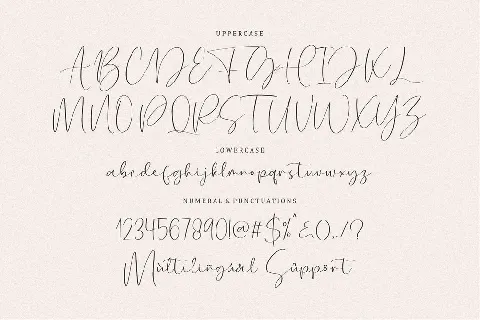 UPPERCASE
ABCDEFGHIJKL
MNOPQRSTUVWXYZ
LOWERCASE
abcdefghijklmnopqrstuvwxyz
NUMERAL & PUNCTUATIONS
1234567890!@#$%^&()../?
Mùltilingúàl Sùppört